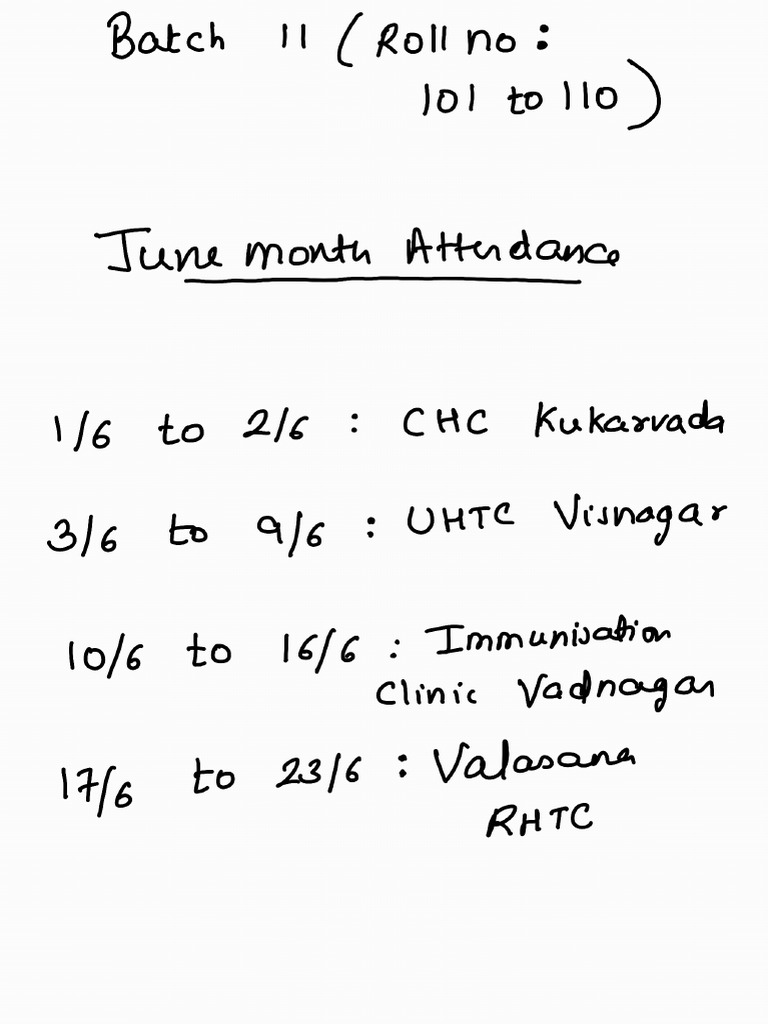 Batch 11 (Roll no:
101 to 110)
June month Attendance
1/6 to 2/6 : CHC Kukarvada
3/6 to 9/6 : UHTC Visnagar
10/6 to 16/6 : Immunisation
Clinic Vadnagar
17/6 to 23/6 : Valasana
RHTC